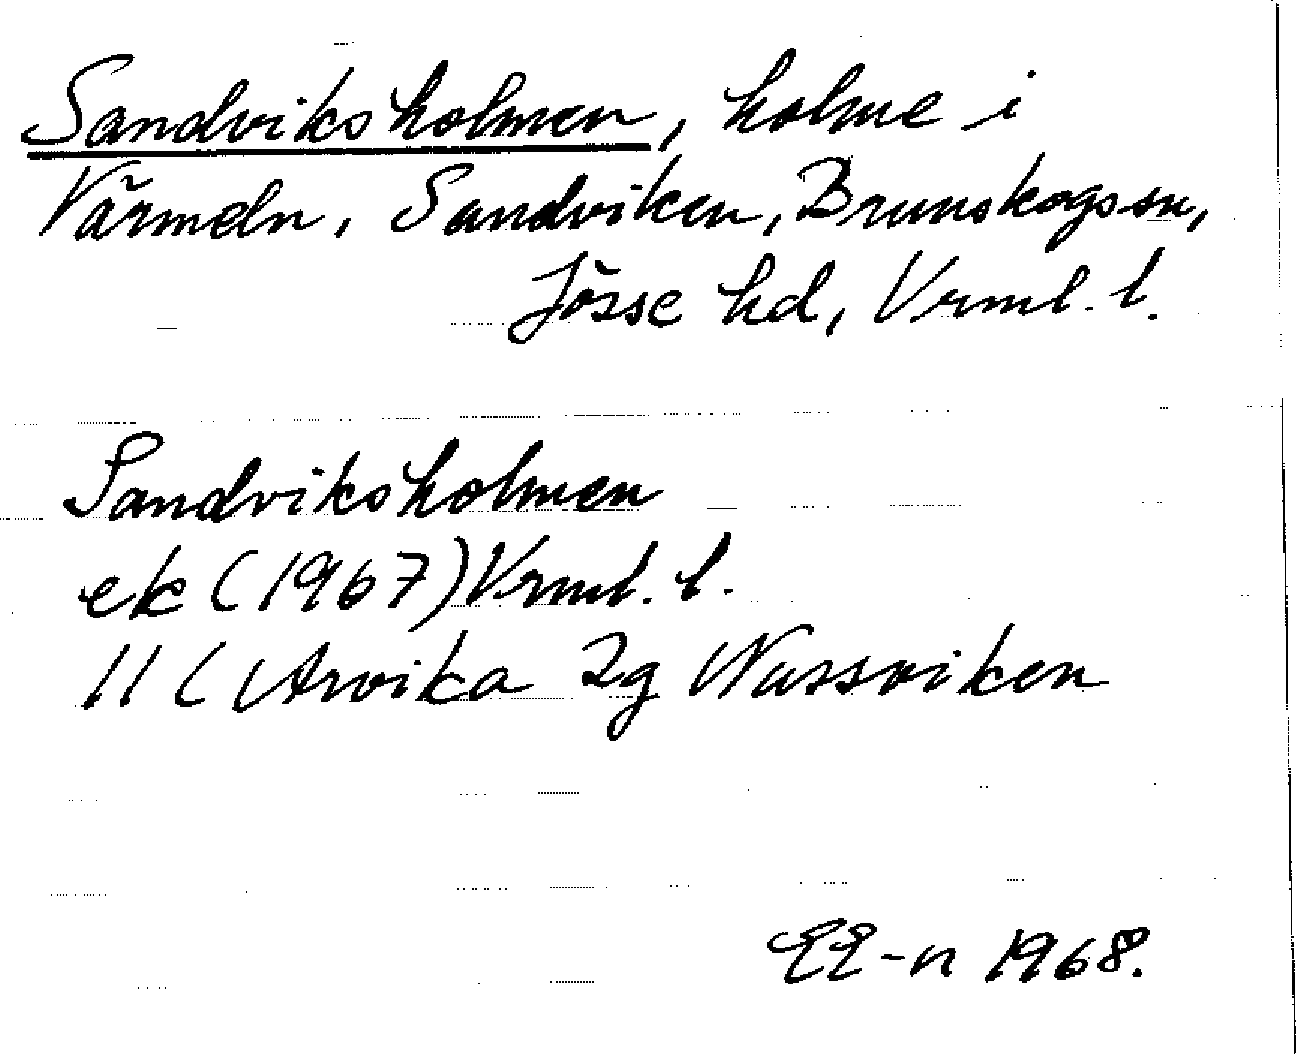 Sandviksholmen, holme i
Värmeln, Sandviken, Brunskogs sn,
Jösse hd, Vrml. l.
Sandviksholmen
ek (1967) Vrml. l.
11 C Arvika 2g Nussviken
EE-n 1968.